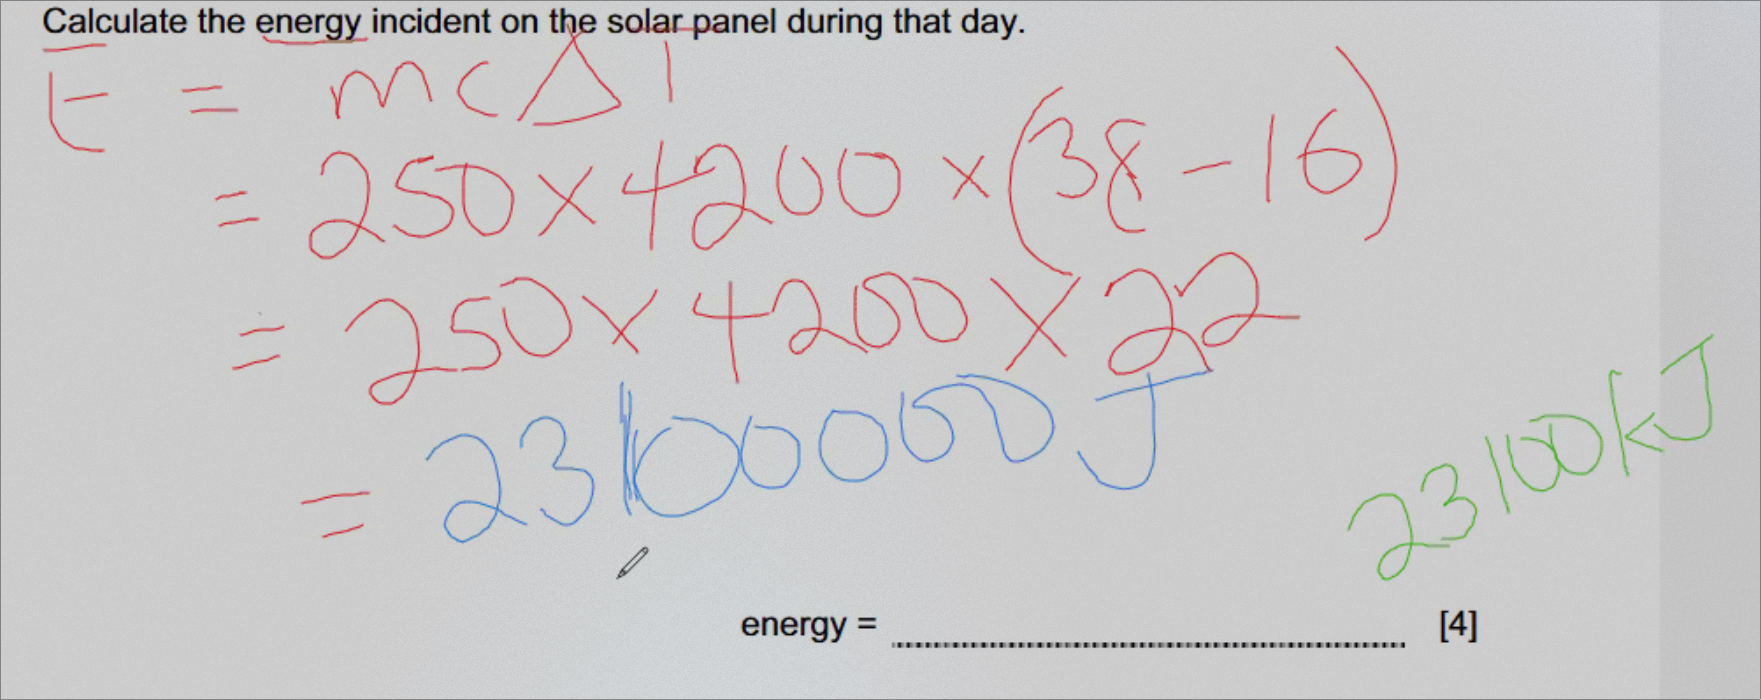 Calculate the energy incident on the solar panel during that day.
E = mcΔT
= 250 × 4200 × (38 - 16)
= 250 × 4200 × 22
= 23100000 J
23100 kJ
energy = ........................................ [4]